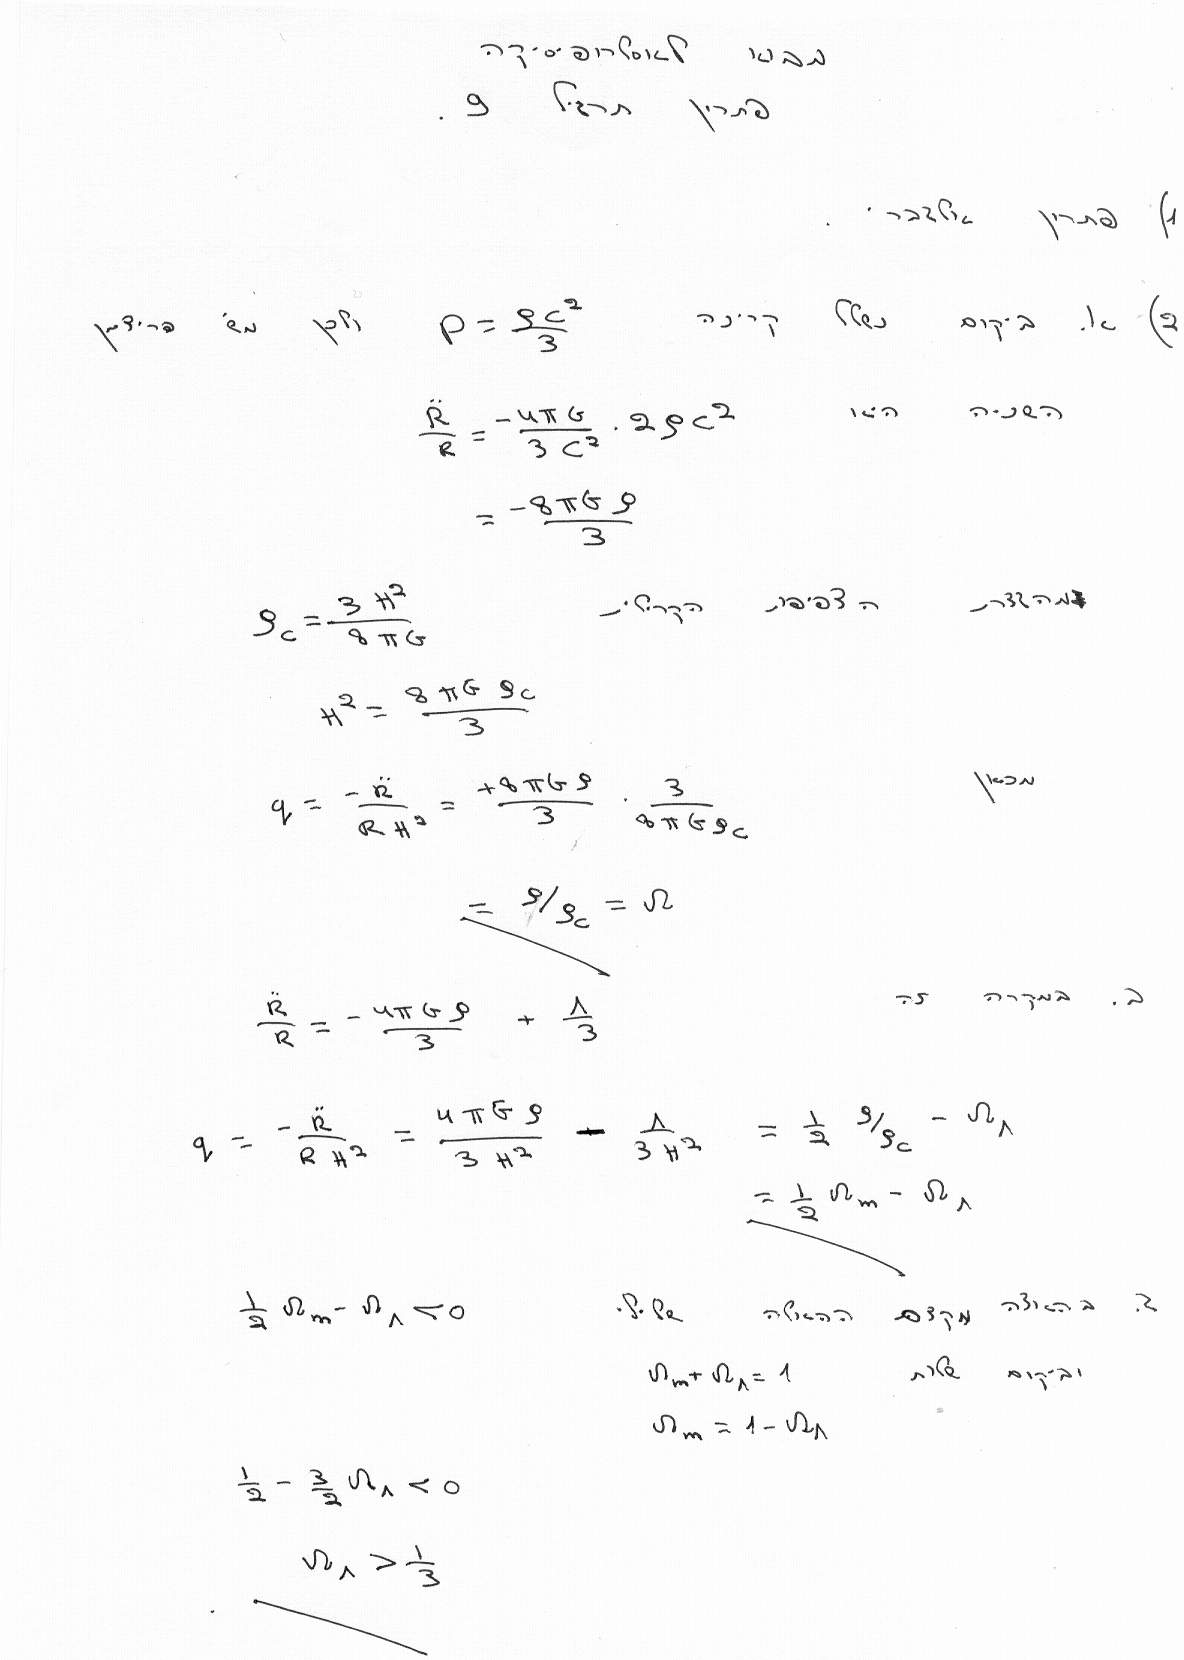 מבוא לאסטרופיסיקה
פתרון תרגיל 9.
1) פתרון אלגברי.
2) א. ביקום נשלט קרינה P = ρc²/3 ולכן מש' פרידמן
השניה היא R̈/R = -4πG/3c² · 2ρc²
= -8πGρ/3
מהגדרת הצפיפות הקריטית ρc = 3H²/8πG
H² = 8πGρc/3
מכאן q = -R̈/RH² = +8πGρ/3 · 3/8πGρc
= ρ/ρc = Ω
ב. במקרה זה R̈/R = -4πGρ/3 + Λ/3
q = -R̈/RH² = 4πGρ/3H² - Λ/3H² = 1/2 ρ/ρc - ΩΛ
= 1/2 Ωm - ΩΛ
ג. בהאוצה מקדם ההאטה שלילי. 1/2 Ωm - ΩΛ < 0
וביקום שטוח Ωm + ΩΛ = 1
Ωm = 1 - ΩΛ
1/2 - 3/2 ΩΛ < 0
ΩΛ > 1/3